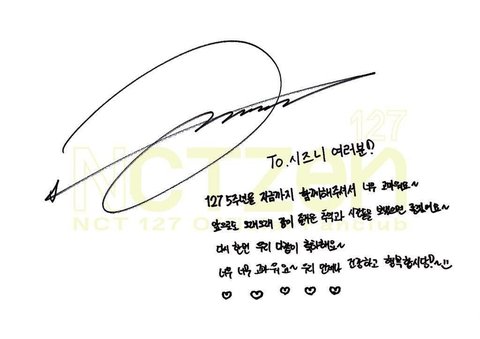 127
NCTzen
NCT 127 Official Fanclub
TO. 시즈니 여러분!?
127 5주년을 지금까지 함께해주셔서 너무 고마워요~
앞으로도 오래오래 같이 좋은 추억과 시간을 보냈으면 좋겠어요~
다시 한번 우리 다같이 축하해요~
너무 너무 고마워요~ 우리 언제나 건강하고 행복합시당!?~